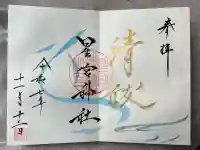 奉拝
清秋
星宮神社
令和七年
十一月十三日